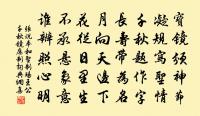 寶鏡頒神節
凝規寫聖情
千秋題作字
長壽帶為名
月向天邊下
花從日裏生
不承懸象意
誰辨照心明
張說奉和聖制賜王公
千秋鏡應制詞典網集